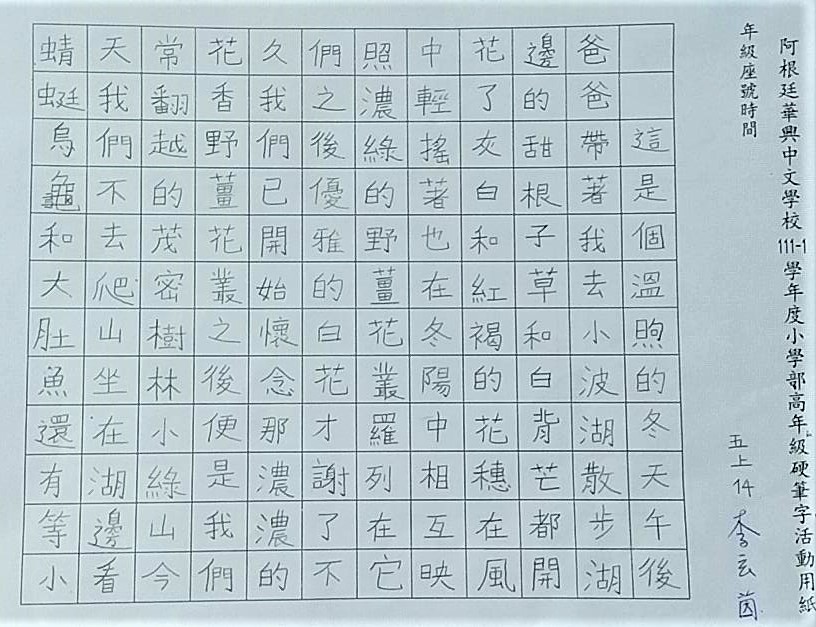 阿根廷華興中文學校111-1學年度小學部高年級硬筆字活動用紙
年級座號時間
五上14李玄茵
這是個溫煦的冬天午後
爸爸帶著我去小波湖散步湖
邊的甜根子草和白背芒都開
花了灰白和紅褐的花穗在風
中輕搖著也在冬陽中相互映
照濃綠的野薑花叢羅列在它
們之後優雅的白花才謝了不
久我們已開始懷念那濃濃的
花香野薑花叢之後便是我們
常翻越的茂密樹林小綠山今
天我們不去爬山坐在湖邊看
蜻蜓烏龜和大肚魚還有等小